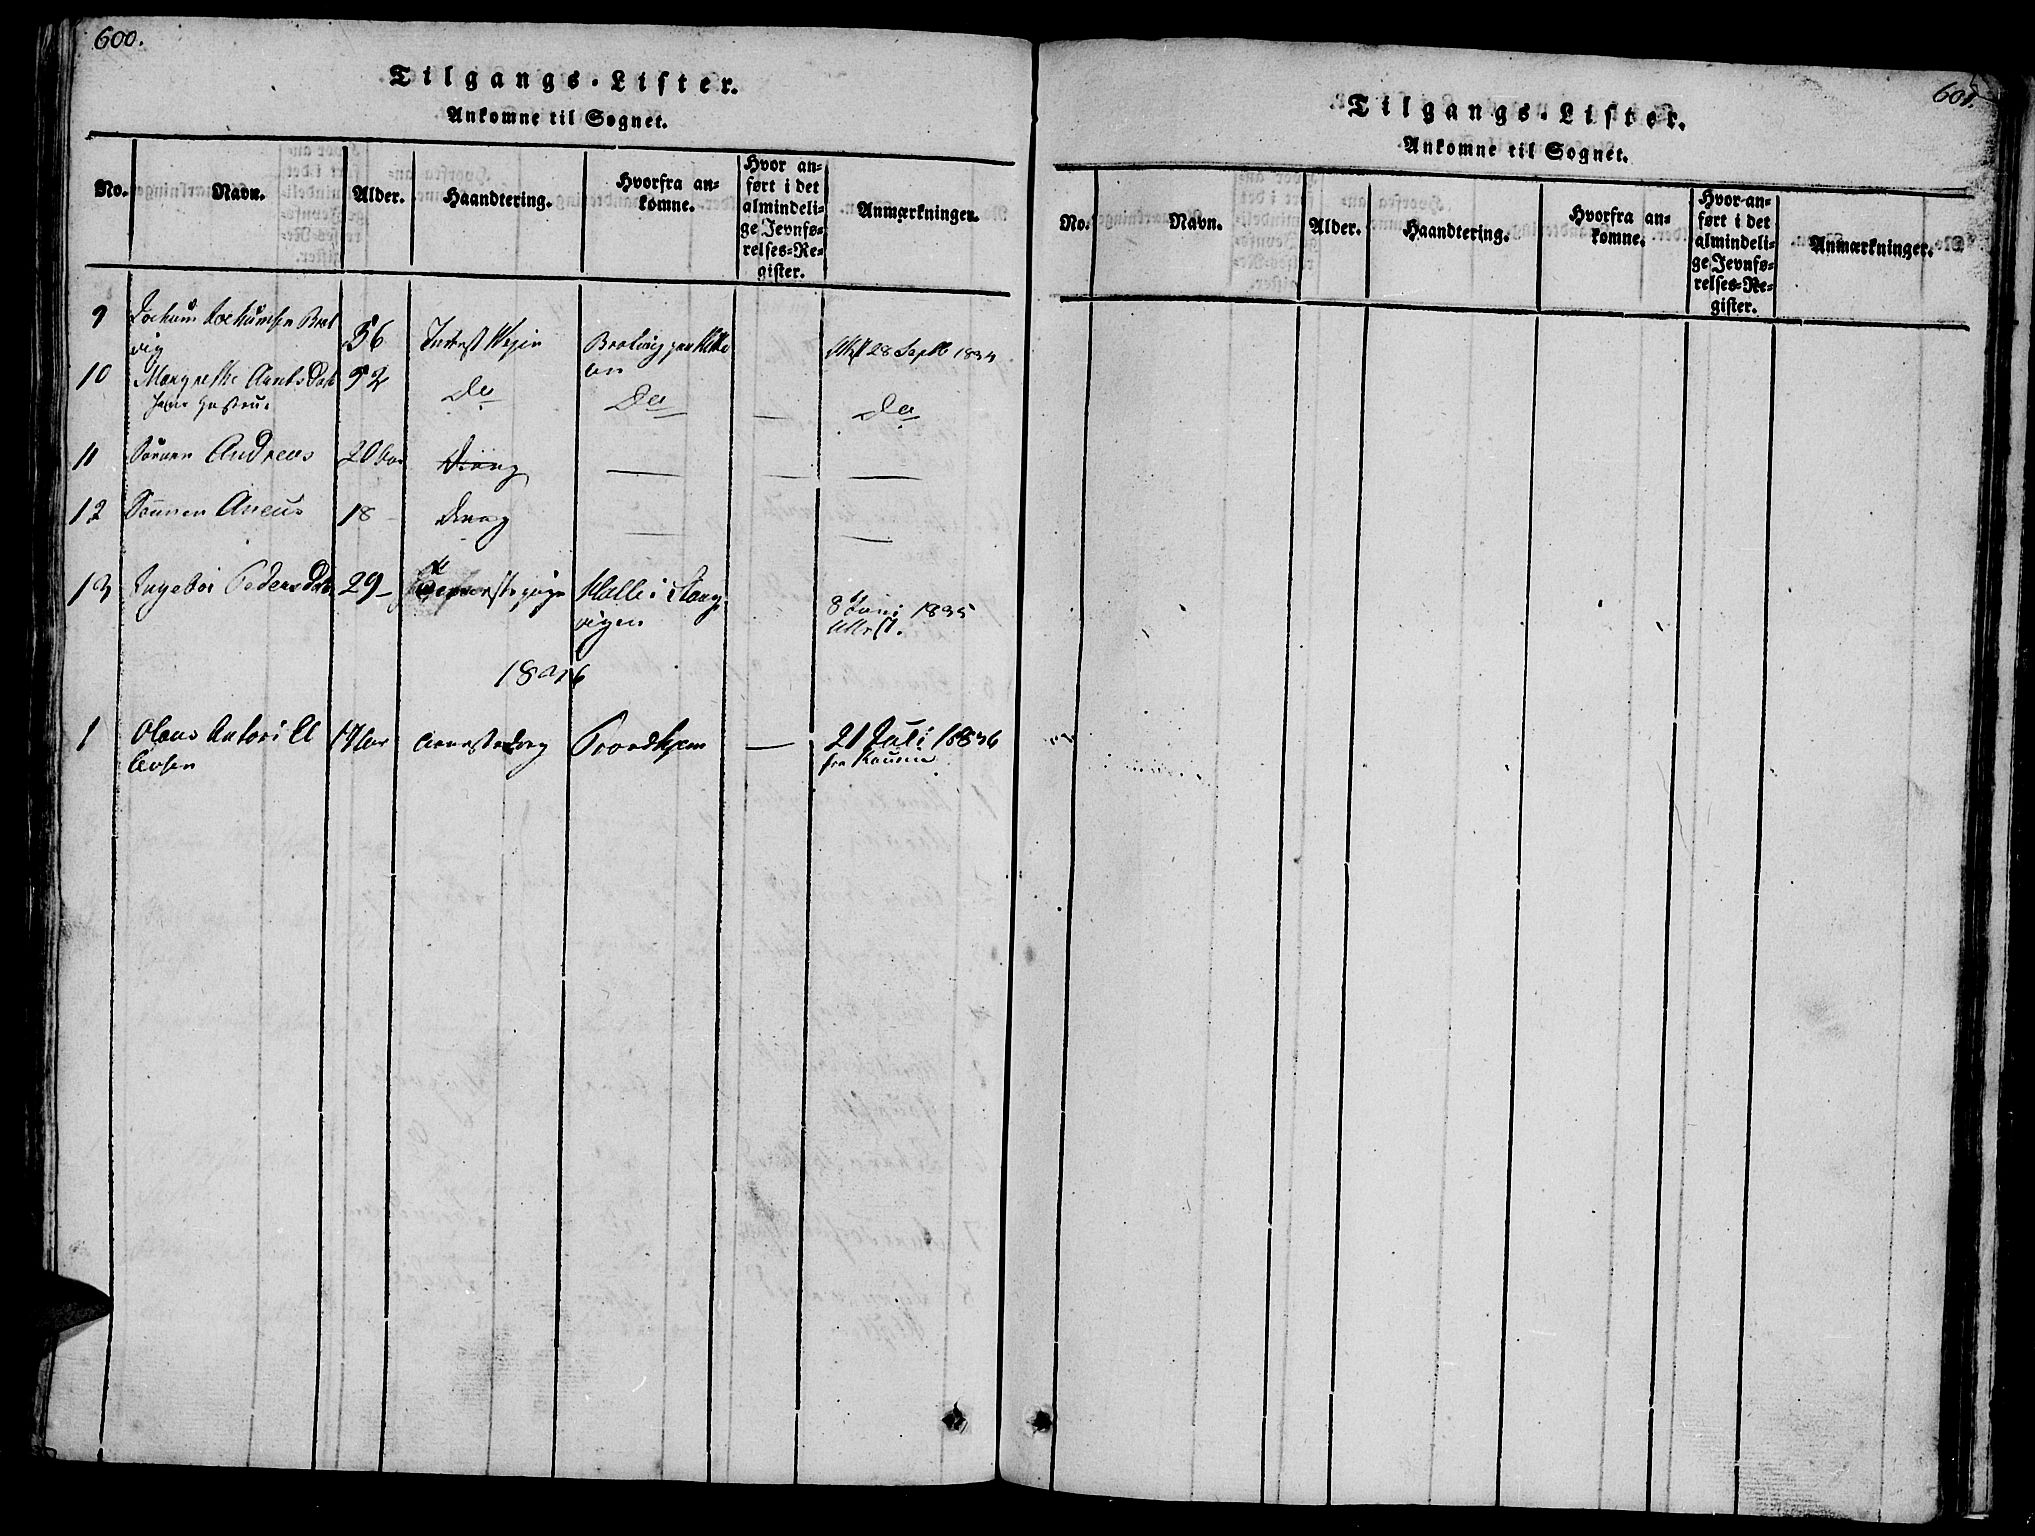 600.
Tilgangs-Lister.
Ankomne til Sognet.
No. Navn. Alder. Haandtering. Hvorfra ankomne. Hvor anført i det almindelige Jevnførelses-Register. Anmærkninger.
9 Jochum Jochumsen Bratvig 56 28 Septb 1834
10 Margrethe Arntsdat 52 Do Do — Do
hans Hustrue
11 Sønnen Andreas 20 Aar Dreng — — —
12 Sønnen 18 Dreng — —
13 Ingebor Pedersdat 29 Halle i Stangvigen 8 Juni 1835
1836
1 Olaus Antoni El 17 Aar Trondhjem — 21 Juli 1836
fra
601.
Tilgangs-Lister.
Ankomne til Sognet.
No. Navn. Alder. Haandtering. Hvorfra ankomne. Hvor anført i det almindelige Jevnførelses-Register. Anmærkninger.